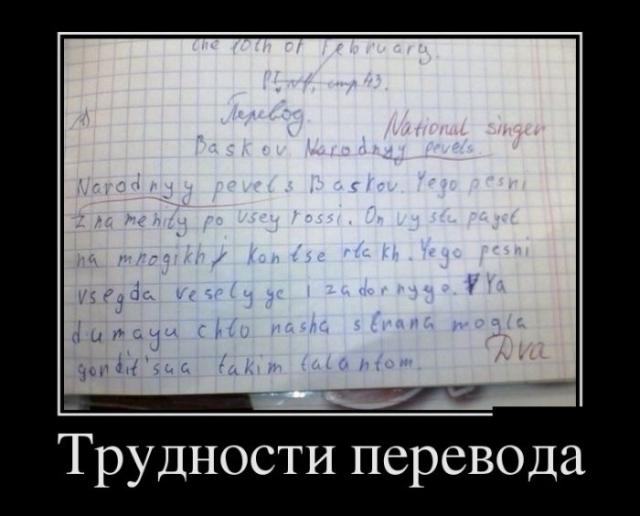 the 10th of February.
P I, N1, стр 43.
Перевод.
National singer
Baskov. Narodnyy pevets.
Narodnyy pevets Baskov. Yego pesni
znamenity po vsey rossi. On vystupayet
na mnogikh kontsertakh. Yego pesni
vsegda veselyye i zadornyye. Ya
dumayu chto nasha strana mogla
gordit'sya takim talantom.
Dva
Трудности перевода